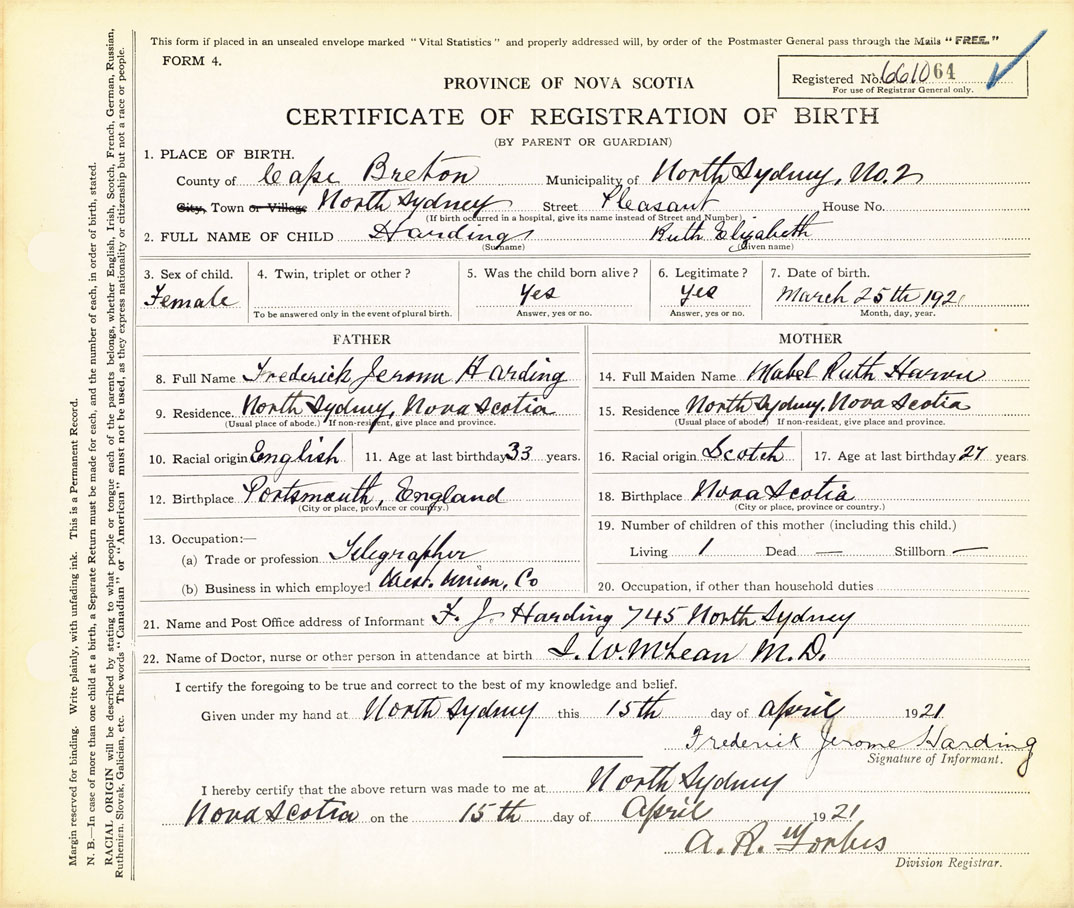 This form if placed in an unsealed envelope marked "Vital Statistics" and properly addressed will, by order of the Postmaster General pass through the Mails "FREE."
FORM 4.
Registered No. 661064
For use of Registrar General only.
PROVINCE OF NOVA SCOTIA
CERTIFICATE OF REGISTRATION OF BIRTH
(BY PARENT OR GUARDIAN)
1. PLACE OF BIRTH.
County of Cape Breton Municipality of North Sydney, No. 2
City, Town or Village North Sydney Street Pleasant House No.
(If birth occurred in a hospital, give its name instead of Street and Number)
2. FULL NAME OF CHILD Harding Ruth Elizabeth
(Surname) (Given name)
3. Sex of child. 4. Twin, triplet or other? 5. Was the child born alive? 6. Legitimate? 7. Date of birth.
Female Yes Yes March 25th 1921
To be answered only in the event of plural birth. Answer, yes or no. Answer, yes or no. Month, day, year.
FATHER MOTHER
8. Full Name Frederick Jerome Harding 14. Full Maiden Name Mabel Ruth
9. Residence. North Sydney, Nova Scotia 15. Residence North Sydney, Nova Scotia
(Usual place of abode.) If non-resident, give place and province. (Usual place of abode.) If non-resident, give place and province.
10. Racial origin English 11. Age at last birthday 33 years. 16. Racial origin Scotch 17. Age at last birthday 27 years
12. Birthplace Portsmouth, England 18. Birthplace Nova Scotia
(City or place, province or country.) (City or place, province or country.)
13. Occupation:— 19. Number of children of this mother (including this child.)
(a) Trade or profession Telegrapher Living 1 Dead — Stillborn —
(b) Business in which employed West. Union, Co 20. Occupation, if other than household duties
21. Name and Post Office address of Informant F. J. Harding 745 North Sydney
22. Name of Doctor, nurse or other person in attendance at birth McLean M.D.
I certify the foregoing to be true and correct to the best of my knowledge and belief.
Given under my hand at North Sydney this 15th day of April 1921
Frederick Jerome Harding
Signature of Informant.
I hereby certify that the above return was made to me at North Sydney
Nova Scotia on the 15th day of April 1921
A. R. Forbes
Division Registrar.
Margin reserved for binding. Write plainly, with unfading ink. This is a Permanent Record.
N. B.—In case of more than one child at a birth, a Separate Return must be made for each, and the number of each, in order of birth, stated.
RACIAL ORIGIN will be described by stating to what people or tongue each of the parents belongs, whether English, Irish, Scotch, French, German, Russian,
Ruthenian, Slovak, Galician, etc. The words "Canadian" or "American" must not be used, as they express nationality or citizenship but not a race or people.